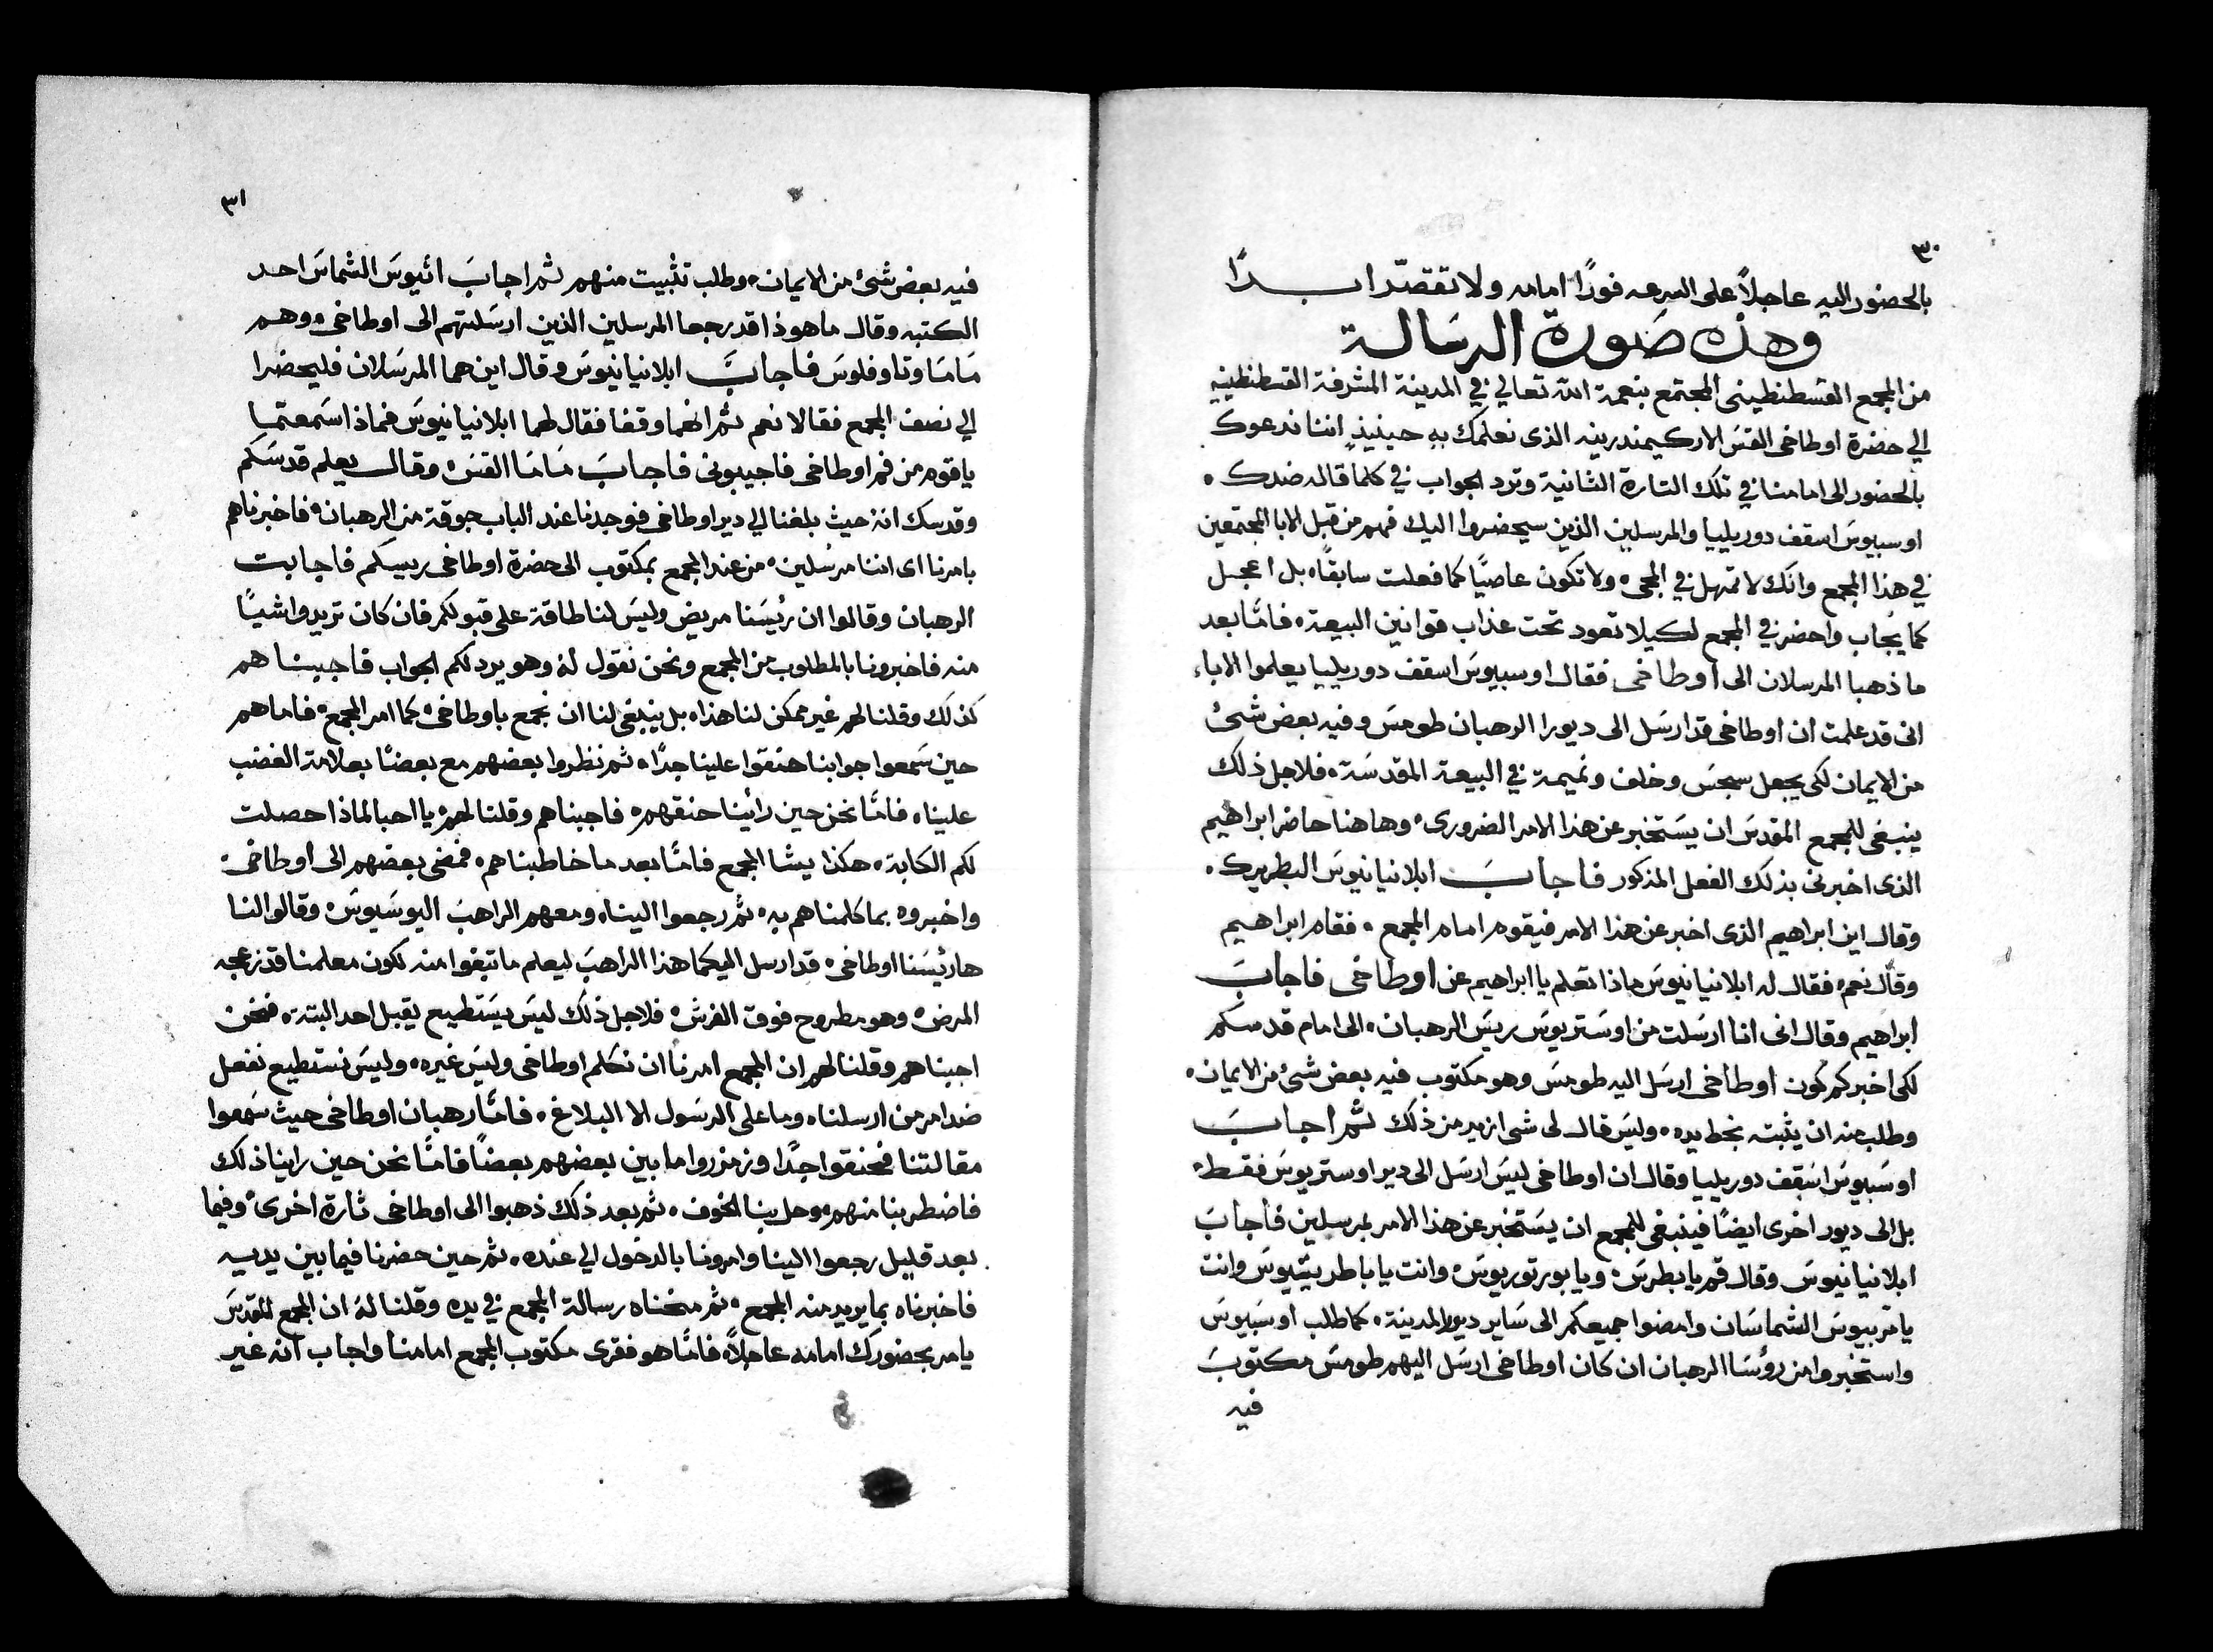 ٣٠
بالحضور اليه عاجلاً على السرعه فورًا امامه ولا تقصّر ابدًا
وهذه صَورة الرسَالة
من المجمع القسطنطينى المجتمع بنعمة الله تعالي في المدينة المشرفة القسطنطينيه
الي حضرة اوطاخى القسَ الاركيمندريته الذى نعلمك به حينيذٍ اننا ندعوك
بالحضور الى امامنا في تلك التارة الثانية وترد الجواب في كلما قاله ضدك ٠
اوسبيوسَ اسقف دوريليا والمرسلين الذين سيحضروا اليك فهم من قبل الابا المجتمعين
في هذا المجمع وانك لا تمهل في المجى ولا تكون عاصيًا كما فعلت سابقًا بل اعجل
كما يجاب واحضر في المجمع لكيلا تعود تحت عذاب قوانين البيعة ٠ فامّا بعد
ما ذهبا المرسلان الى اوطاخى فقال اوسبيوسَ اسقف دوريليا يعلموا الاباء
انى قد علمت ان اوطاخى قد ارسَل الى ديورا الرهبان طومسَ وفيه بعض شئ
من الايمان لكى يجعل سجسَ وخلف ونميمة في البيعة المقدسَة ٠ فلاجل ذلك
ينبغى للمجمع المقدسَ ان يسَتخبر عن هذا الامر الضرورى ٠ وهاهنا حاضر ابراهيم
الذى اخبرنى بذلك الفعل المذكور فاجابَ ابلانيانيوسَ البطريرك ٠
وقال اين ابراهيم الذى اخبر عن هذا الامر فيقوم امام المجمع ٠ فقام ابراهيم
وقال نعم ٠ فقال له ابلانيانيوسَ ماذا تعلم يا ابراهيم عن اوطاخى فاجابَ
ابراهيم وقال انى انا ارسَلت من اوسَتريوسَ ريسَ الرهبان ٠ الى امام قدسكم
لكى اخبركم كون اوطاخى ارسَل اليه طومسَ وهو مكتوب فيه بعض شئ من الايمان ٠
وطلب منه ان يثبته بخط يده ٠ وليسَ قال لى شى ازيد من ذلك ثم اجابَ
اوسَبيوسَ اسَقف دوريليا وقال ان اوطاخى ليسَ ارسَل الى دير اوستريوسَ فقط ٠
بل الى ديور اخرى ايضًا فينبغى للمجمع ان يسَتخبر عن هذا الامر بمرسلين فاجابَ
ابلانيانيوسَ وقال قم يا بطرسَ ٠ ويا بورتوريوسَ ٠ وانت يا باطريتيوسَ وانت
يا الشماسَان وامضوا جميعكم الى سَاير ديور المدينة ٠ كما طلب اوسَبيوسَ
واستخبروا من رؤسَا الرهبان ان كان اوطاخى ارسَل اليهم طومسَ مكتوبَ
فيه
٣١
فيه بعض شئ من الايمان ٠ وطلب تثبيت منهم ثم اجابَ اثيوسَ الشماسَ احد
الكتبه وقال ما هوذا قد رجعا المرسلين الذين ارسَلتهم الى اوطاخى ٠ وهم
مَامَا وتاوفلوسَ فاجابَ ابلانيانيوسَ وقال اين هما المرسَلان فليحضرا
الي نصف المجمع فقالا نعم ثم انهما وقفا فقال لهما ابلانيانيوسَ فماذا اسَمعتما
يا قوم من فم اوطاخى فاجيبونى فاجابَ مَامَا القسَ ٠ وقال يعلم قدسَكم
وقدسك انه حيث بلغنا الي دير اوطاخى فوجدنا عند الباب جوقة من الرهبان ٠ فاخبرناهم
بامرنا اى اننا مرسُلين ٠ من عند المجمع بمكتوب الى حضرة اوطاخى ريسكم فاجابت
الرهبان وقالوا ان رئيسَنا مريض وليسَ لنا طاقة على قبولكم فان كان تريدوا شيًا
منه فاخبرونا بالمطلوب من المجمع ونحن نقول له وهو يرد لكم الجواب فاجبناهم
كذلك وقلنا لهم غير ممكن لنا هذا ٠ بل ينبغى لنا ان نجمع باوطاخى ٠ كما امر المجمع ٠ فاما هم
حين سَمعوا جوابنا حنقوا علينا جدًا ٠ ثم نظروا بعضهم مع بعضًا بعلامة الغضب
علينا ٠ فامّا نحن حين رأينا حنقهم ٠ فاجبناهم وقلنا لهم ٠ يا احبا لماذا حصلت
لكم الكابة ٠ هكذا يشا المجمع فامّا بعد ما خاطبناهم ٠ فمضى بعضهم الى اوطاخى ٠
واخبروه بما كلمناهم به ٠ ثم رجعوا الينا ٠ ومعهم الراهبَ اليوسَيوسَ ٠ وقالوا لنا
ها رئيسَنا اوطاخى ٠ قد ارسل اليكما هذا الراهبَ ليعلم ما تبغوا منه لكون معلمنا قد زعجه
المرض ٠ وهو مطروح فوق الفرش ٠ فلاجل ذلك ليسَ يسَتطيع يقبل احد البتة ٠ فنحن
اجبناهم وقلنا لهم ان المجمع امرنا ان نكلم اوطاخى وليسَ غيره ٠ وليسَ نستطيع نفعل
ضد امر من ارسلنا ٠ وما على الرسَول الا البلاغ ٠ فامّا رهبان اوطاخى حيث سَمعوا
مقالتنا فحنقوا جدًا وزمزروا ما بين بعضهم بعضًا فامّا نحن حين راينا ذلك
فاضطربنا منهم وحل بنا الخوف ٠ ثم بعد ذلك ذهبوا الى اوطاخى تارة اخرى ٠ وفيما
بعد قليل رجعوا الينا وامرونا بالدخول الي عنده ٠ ثم حين حضرنا فيما بين يديه
فاخبرناه بما يريد منه المجمع ٠ ثم منحناه رسالة المجمع في يده وقلنا له ان المجمع المقدسَ
يامر بحضورك امامه عاجلاً ٠ فامّا هو فقرى مكتوب المجمع امامنا واجاب انه غير